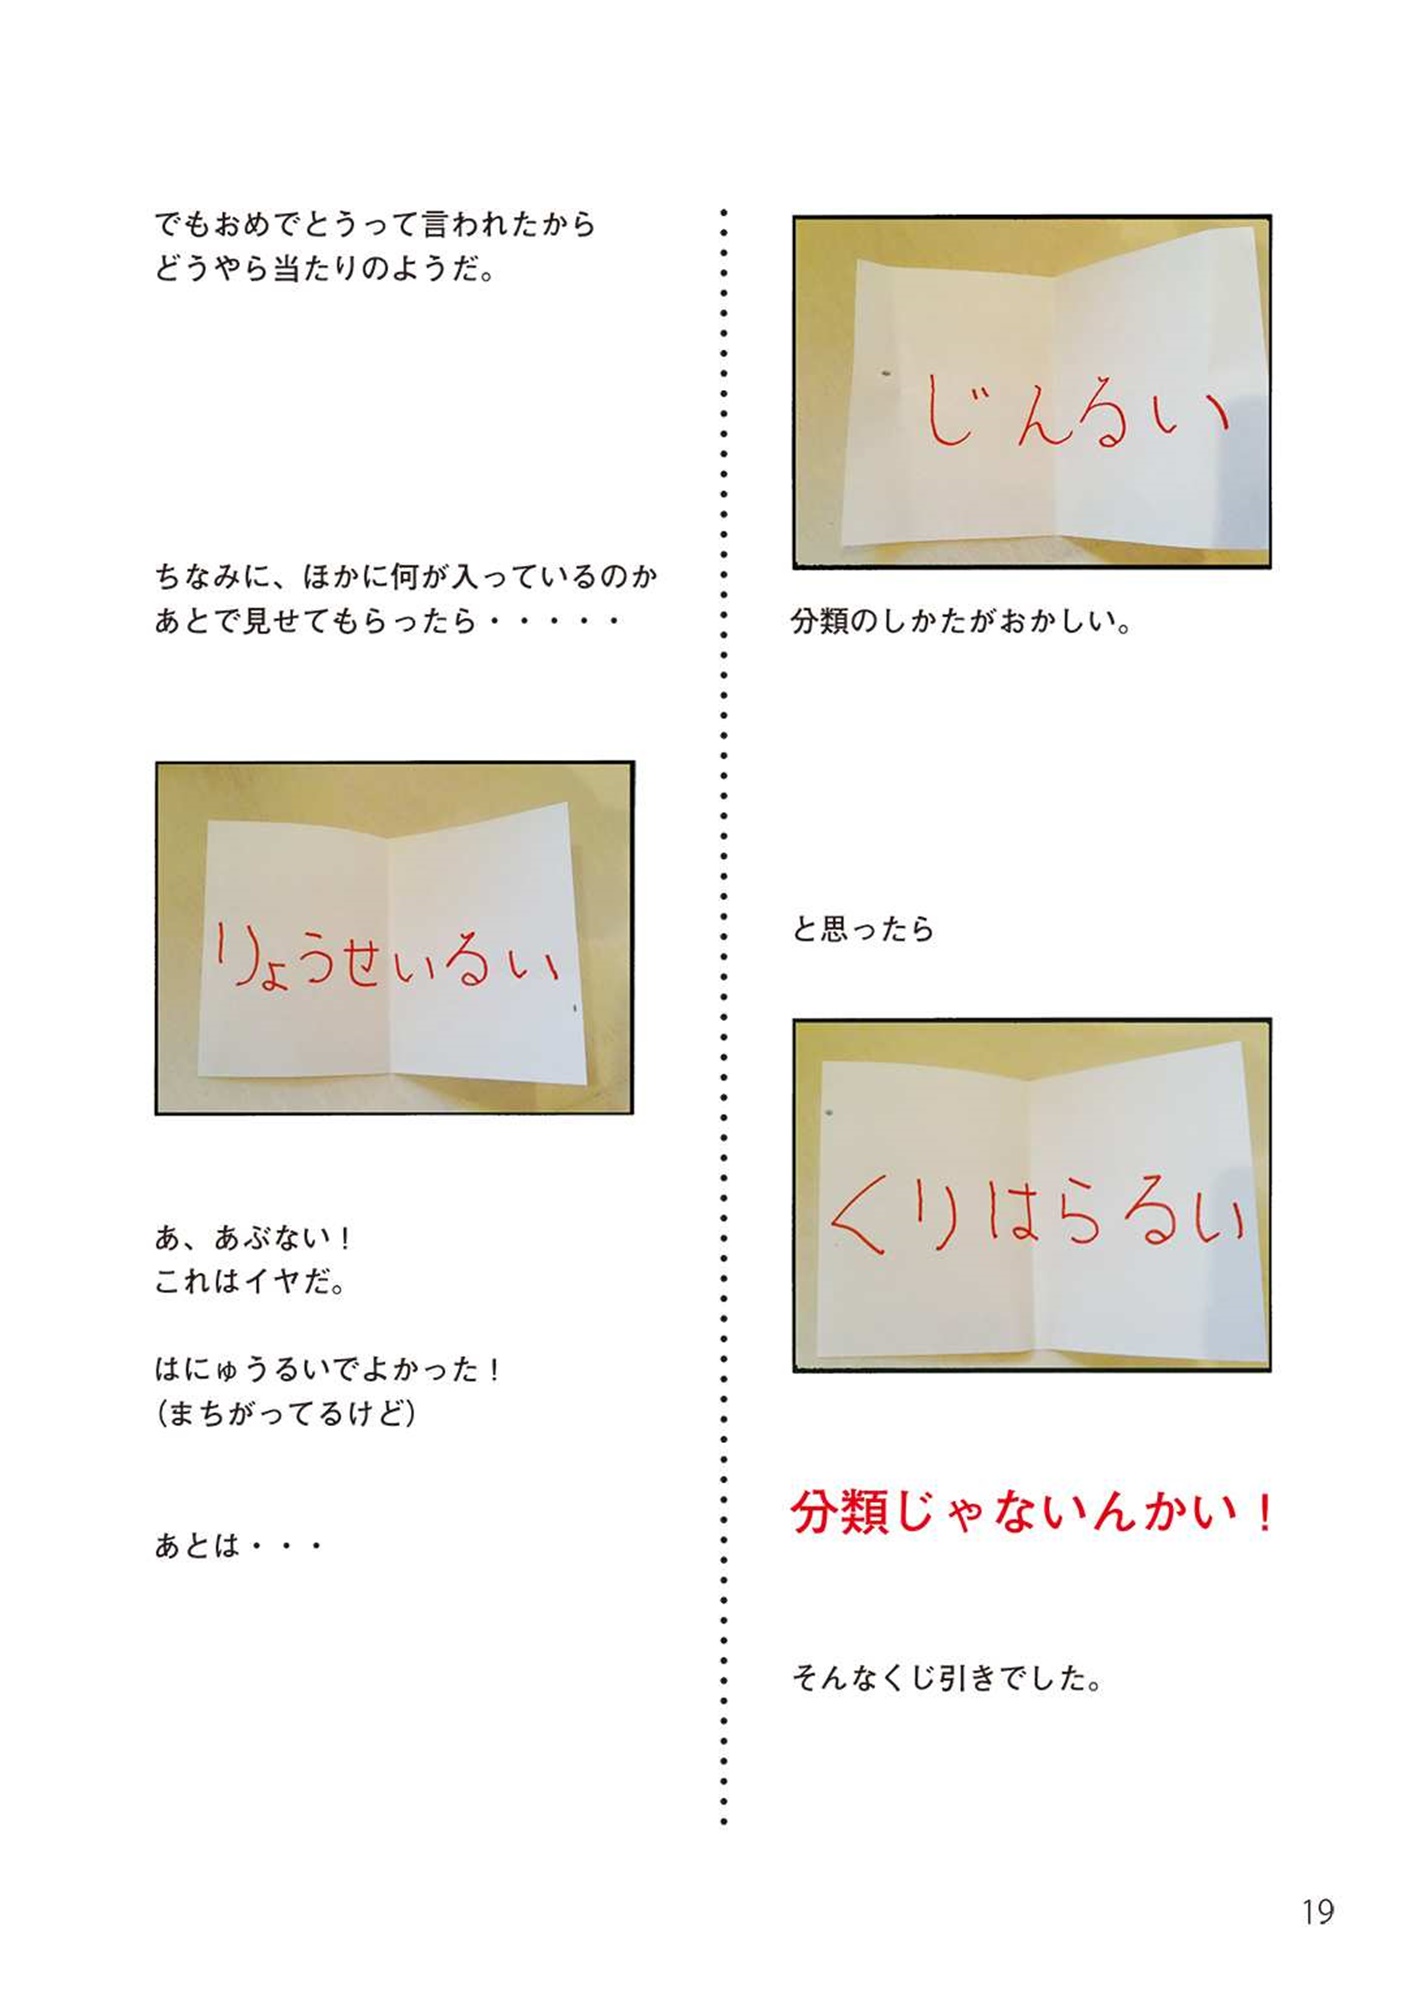 でもおめでとうって言われたから
どうやら当たりのようだ。
ちなみに、ほかに何が入っているのか
あとで見せてもらったら・・・・・
りょうせいるい
あ、あぶない！
これはイヤだ。
はにゅうるいでよかった！
（まちがってるけど）
あとは・・・
じんるい
分類のしかたがおかしい。
と思ったら
くりはらるい
分類じゃないんかい！
そんなくじ引きでした。
19